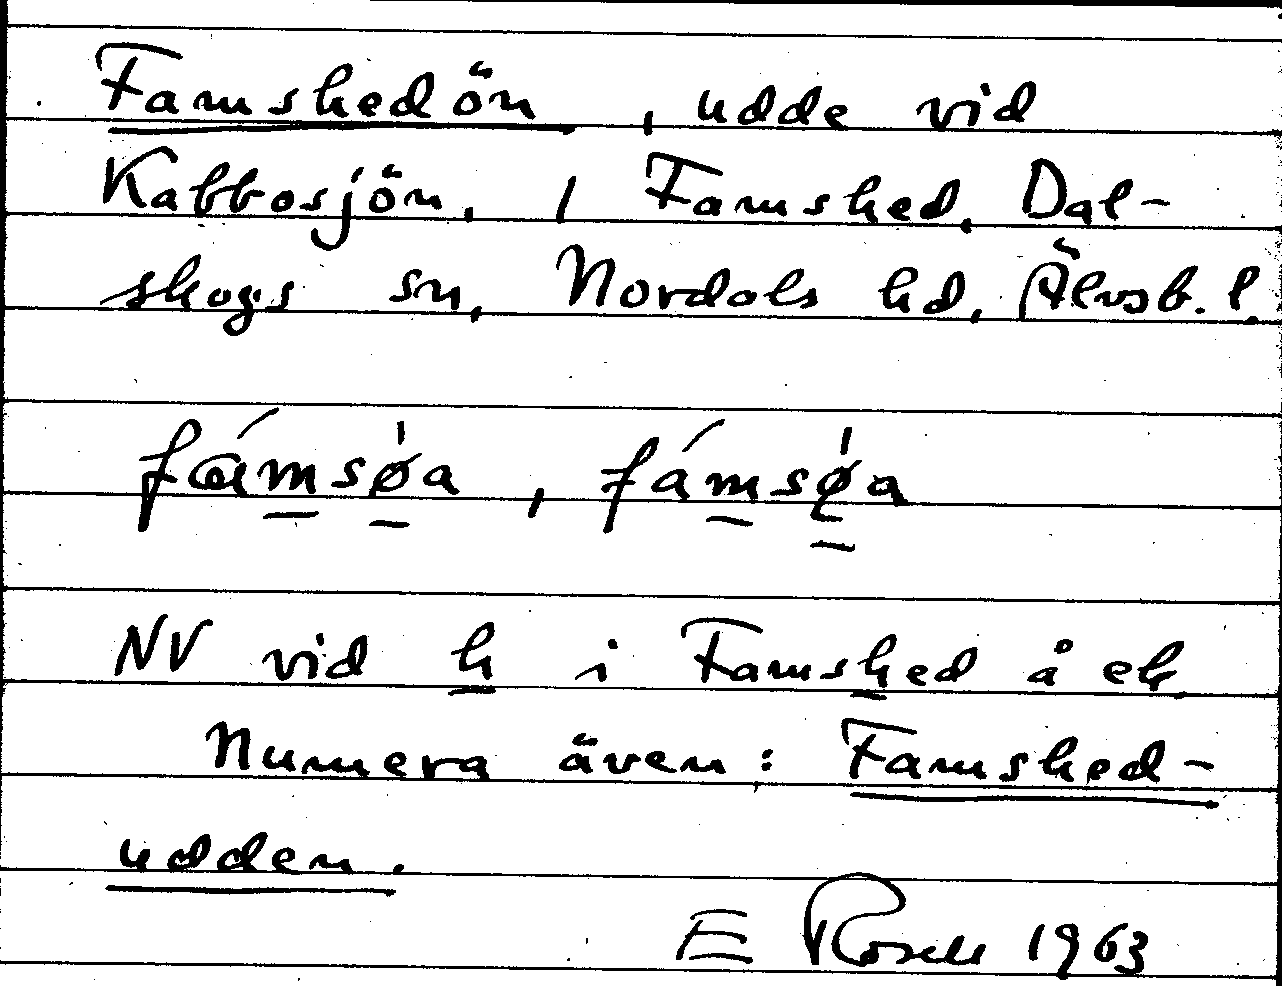 Famshedön, udde vid
Kabbosjön, i Famshed, Dal-
skogs sn, Nordals hd, Älvsb. l.
fámsø̀a, fámsø̀a
NV vid h i Famshed å ek
Numera även: Famshed-
udden.
E Rosell 1963